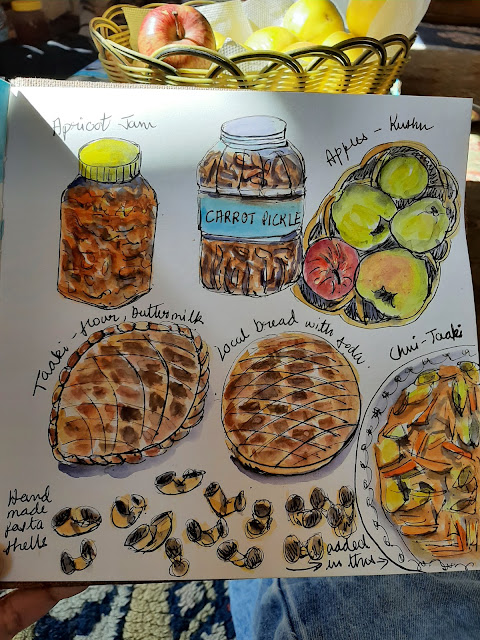 Apricot Jam
CARROT PICKLE
Apples - Kushu
Taaki - flour, buttermilk
Local bread with soda.
Chui-Taaki
Hand
made
pasta
shells
added
in this